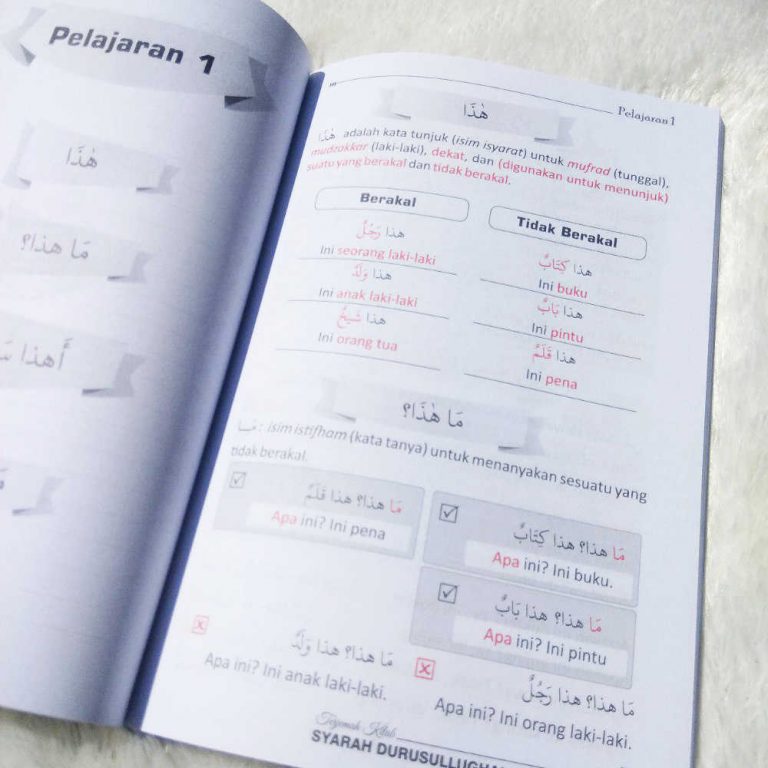 Pelajaran 1
هٰذَا
مَا هذا؟
أَهذا
Pelajaran 1
هٰذَا
هٰذَا adalah kata tunjuk (isim isyarat) untuk mufrad (tunggal),
mudzakkar (laki-laki), dekat, dan (digunakan untuk menunjuk)
suatu yang berakal dan tidak berakal.
Berakal
هذا رَجُلٌ
Ini seorang laki-laki
هذا وَلَدٌ
Ini anak laki-laki
هذا شَيْخٌ
Ini orang tua
Tidak Berakal
هذا كِتَابٌ
Ini buku
هذا بَابٌ
Ini pintu
هذا قَلَمٌ
Ini pena
مَا هٰذَا؟
مَا : isim istifham (kata tanya) untuk menanyakan sesuatu yang
tidak berakal.
مَا هذا؟ هذا قَلَمٌ
Apa ini? Ini pena
مَا هذا؟ هذا كِتَابٌ
Apa ini? Ini buku.
مَا هذا؟ هذا بَابٌ
Apa ini? Ini pintu
مَا هذا؟ هذا وَلَدٌ
Apa ini? Ini anak laki-laki.
مَا هذا؟ هذا رَجُلٌ
Apa ini? Ini orang laki-laki.
Terjemah Kitab
SYARAH DURUSULLUGHA